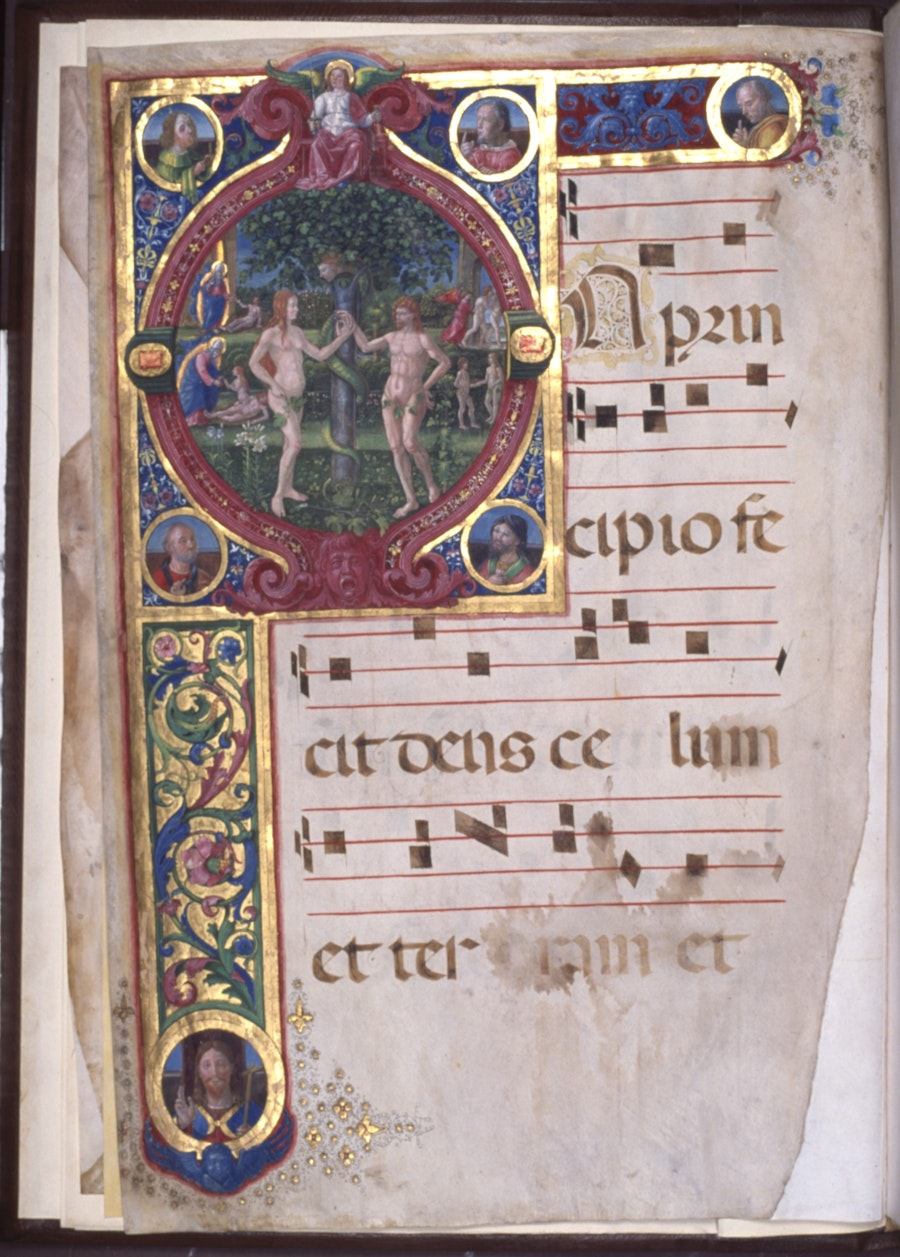 IN prin
cipio fe
cit deus ce lum
et ter ram et